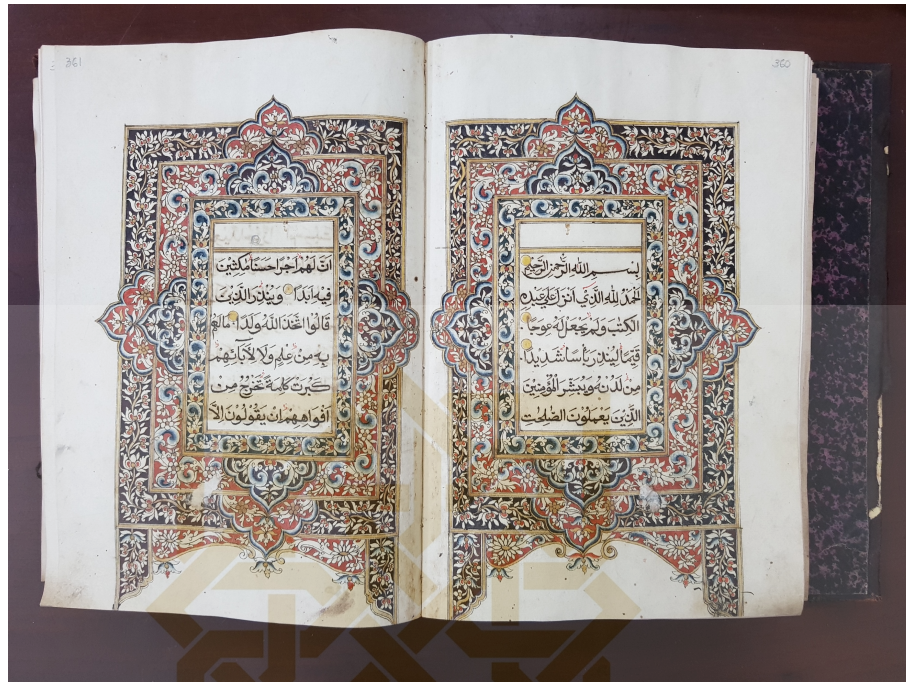 360
بِسْمِ اللهِ الرَّحْمٰنِ الرَّحِيْمِ
اَلْحَمْدُ لِلّٰهِ الَّذِيْ اَنْزَلَ عَلٰى عَبْدِهِ
الْكِتٰبَ وَلَمْ يَجْعَلْ لَهُ عِوَجًا
قَيِّمًا لِيُنْذِرَ بَأْسًا شَدِيْدًا
مِنْ لَدُنْهُ وَيُبَشِّرَ الْمُؤْمِنِيْنَ
الَّذِيْنَ يَعْمَلُوْنَ الصّٰلِحٰتِ
361
اَنَّ لَهُمْ اَجْرًا حَسَنًا مٰكِثِيْنَ
فِيْهِ اَبَدًا وَيُنْذِرَ الَّذِيْنَ
قَالُوا اتَّخَذَ اللهُ وَلَدًا مَالَهُمْ
بِهِ مِنْ عِلْمٍ وَلَا لِاٰبَائِهِمْ
كَبُرَتْ كَلِمَةً تَخْرُجُ مِنْ
اَفْوَاهِهِمْ اِنْ يَقُوْلُوْنَ اِلَّا